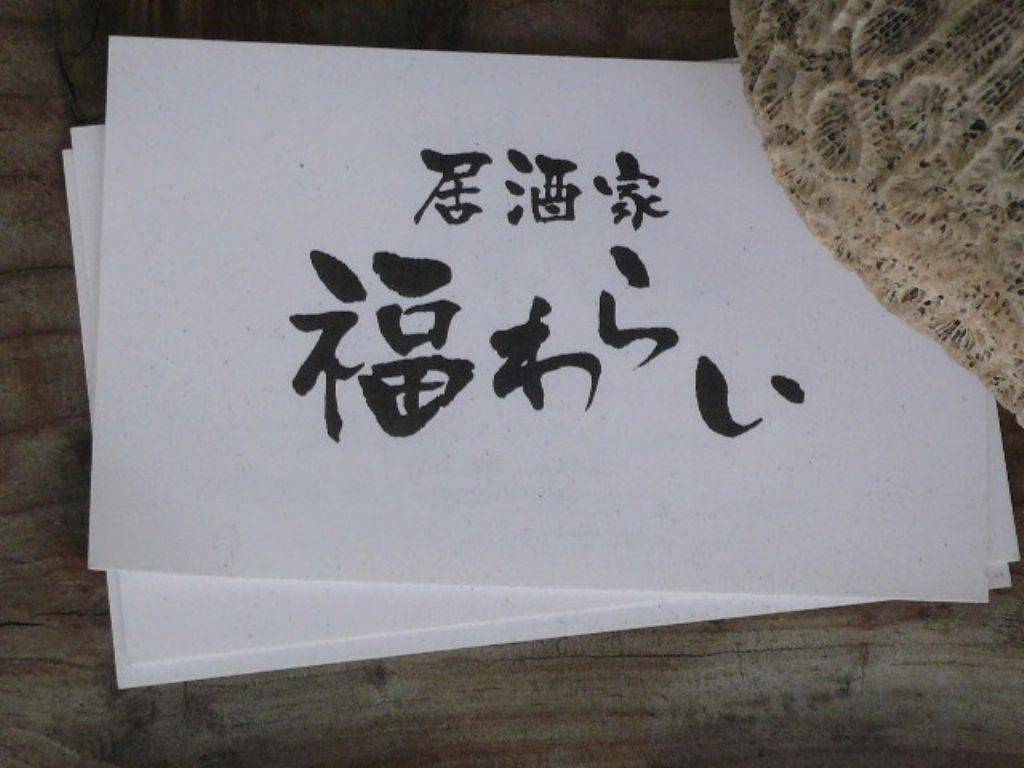 居酒家
福わらい